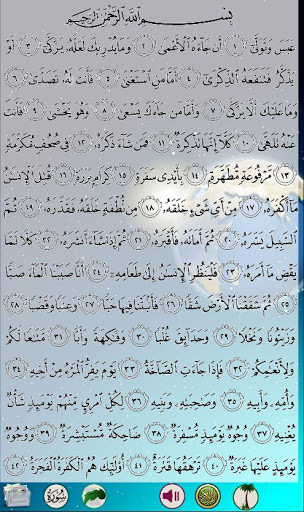 بِسْمِ اللَّهِ الرَّحْمَٰنِ الرَّحِيمِ
عَبَسَ وَتَوَلَّىٰ ١ أَن جَاءَهُ الْأَعْمَىٰ ٢ وَمَا يُدْرِيكَ لَعَلَّهُ يَزَّكَّىٰ ٣ أَوْ
يَذَّكَّرُ فَتَنفَعَهُ الذِّكْرَىٰ ٤ أَمَّا مَنِ اسْتَغْنَىٰ ٥ فَأَنتَ لَهُ تَصَدَّىٰ ٦
وَمَا عَلَيْكَ أَلَّا يَزَّكَّىٰ ٧ وَأَمَّا مَن جَاءَكَ يَسْعَىٰ ٨ وَهُوَ يَخْشَىٰ ٩ فَأَنتَ
عَنْهُ تَلَهَّىٰ ١٠ كَلَّا إِنَّهَا تَذْكِرَةٌ ١١ فَمَن شَاءَ ذَكَرَهُ ١٢ فِي صُحُفٍ مُّكَرَّمَةٍ
١٣ مَّرْفُوعَةٍ مُّطَهَّرَةٍ ١٤ بِأَيْدِي سَفَرَةٍ ١٥ كِرَامٍ بَرَرَةٍ ١٦ قُتِلَ الْإِنسَانُ
مَا أَكْفَرَهُ ١٧ مِنْ أَيِّ شَيْءٍ خَلَقَهُ ١٨ مِن نُّطْفَةٍ خَلَقَهُ فَقَدَّرَهُ ١٩ ثُمَّ
السَّبِيلَ يَسَّرَهُ ٢٠ ثُمَّ أَمَاتَهُ فَأَقْبَرَهُ ٢١ ثُمَّ إِذَا شَاءَ أَنشَرَهُ ٢٢ كَلَّا لَمَّا
يَقْضِ مَا أَمَرَهُ ٢٣ فَلْيَنظُرِ الْإِنسَانُ إِلَىٰ طَعَامِهِ ٢٤ أَنَّا صَبَبْنَا الْمَاءَ صَبًّا
٢٥ ثُمَّ شَقَقْنَا الْأَرْضَ شَقًّا ٢٦ فَأَنبَتْنَا فِيهَا حَبًّا ٢٧ وَعِنَبًا وَقَضْبًا ٢٨
وَزَيْتُونًا وَنَخْلًا ٢٩ وَحَدَائِقَ غُلْبًا ٣٠ وَفَاكِهَةً وَأَبًّا ٣١ مَّتَاعًا لَّكُمْ
وَلِأَنْعَامِكُمْ ٣٢ فَإِذَا جَاءَتِ الصَّاخَّةُ ٣٣ يَوْمَ يَفِرُّ الْمَرْءُ مِنْ أَخِيهِ ٣٤
وَأُمِّهِ وَأَبِيهِ ٣٥ وَصَاحِبَتِهِ وَبَنِيهِ ٣٦ لِكُلِّ امْرِئٍ مِّنْهُمْ يَوْمَئِذٍ شَأْنٌ
يُغْنِيهِ ٣٧ وُجُوهٌ يَوْمَئِذٍ مُّسْفِرَةٌ ٣٨ ضَاحِكَةٌ مُّسْتَبْشِرَةٌ ٣٩ وَوُجُوهٌ
يَوْمَئِذٍ عَلَيْهَا غَبَرَةٌ ٤٠ تَرْهَقُهَا قَتَرَةٌ ٤١ أُولَٰئِكَ هُمُ الْكَفَرَةُ الْفَجَرَةُ ٤٢
سورة